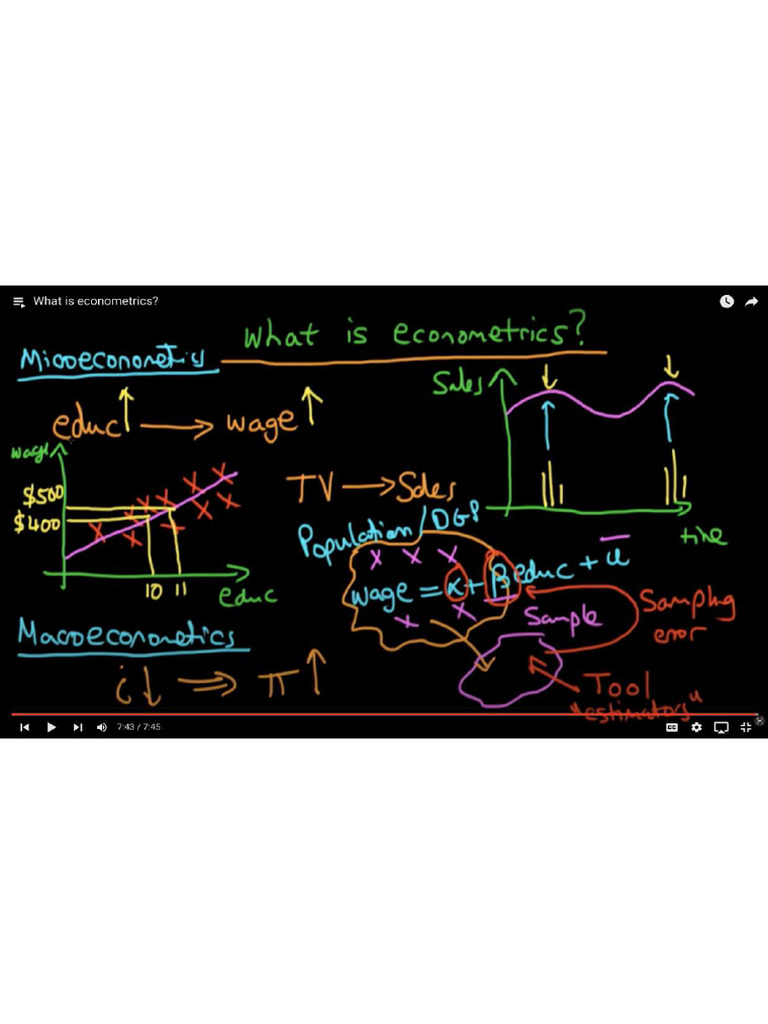 What is econometrics?
What is econometrics?
Microeconometrics
educ ↑ → wage ↑
wage
$500
$400
10 11
educ
Sales
time
TV → Sales
Population/DGP
x x x
wage = α + β educ + u
x x
Sample
Sampling
error
Tool
"estimators"
Macroeconometrics
i ↓ ⇒ π ↑
7:43 / 7:45
CC